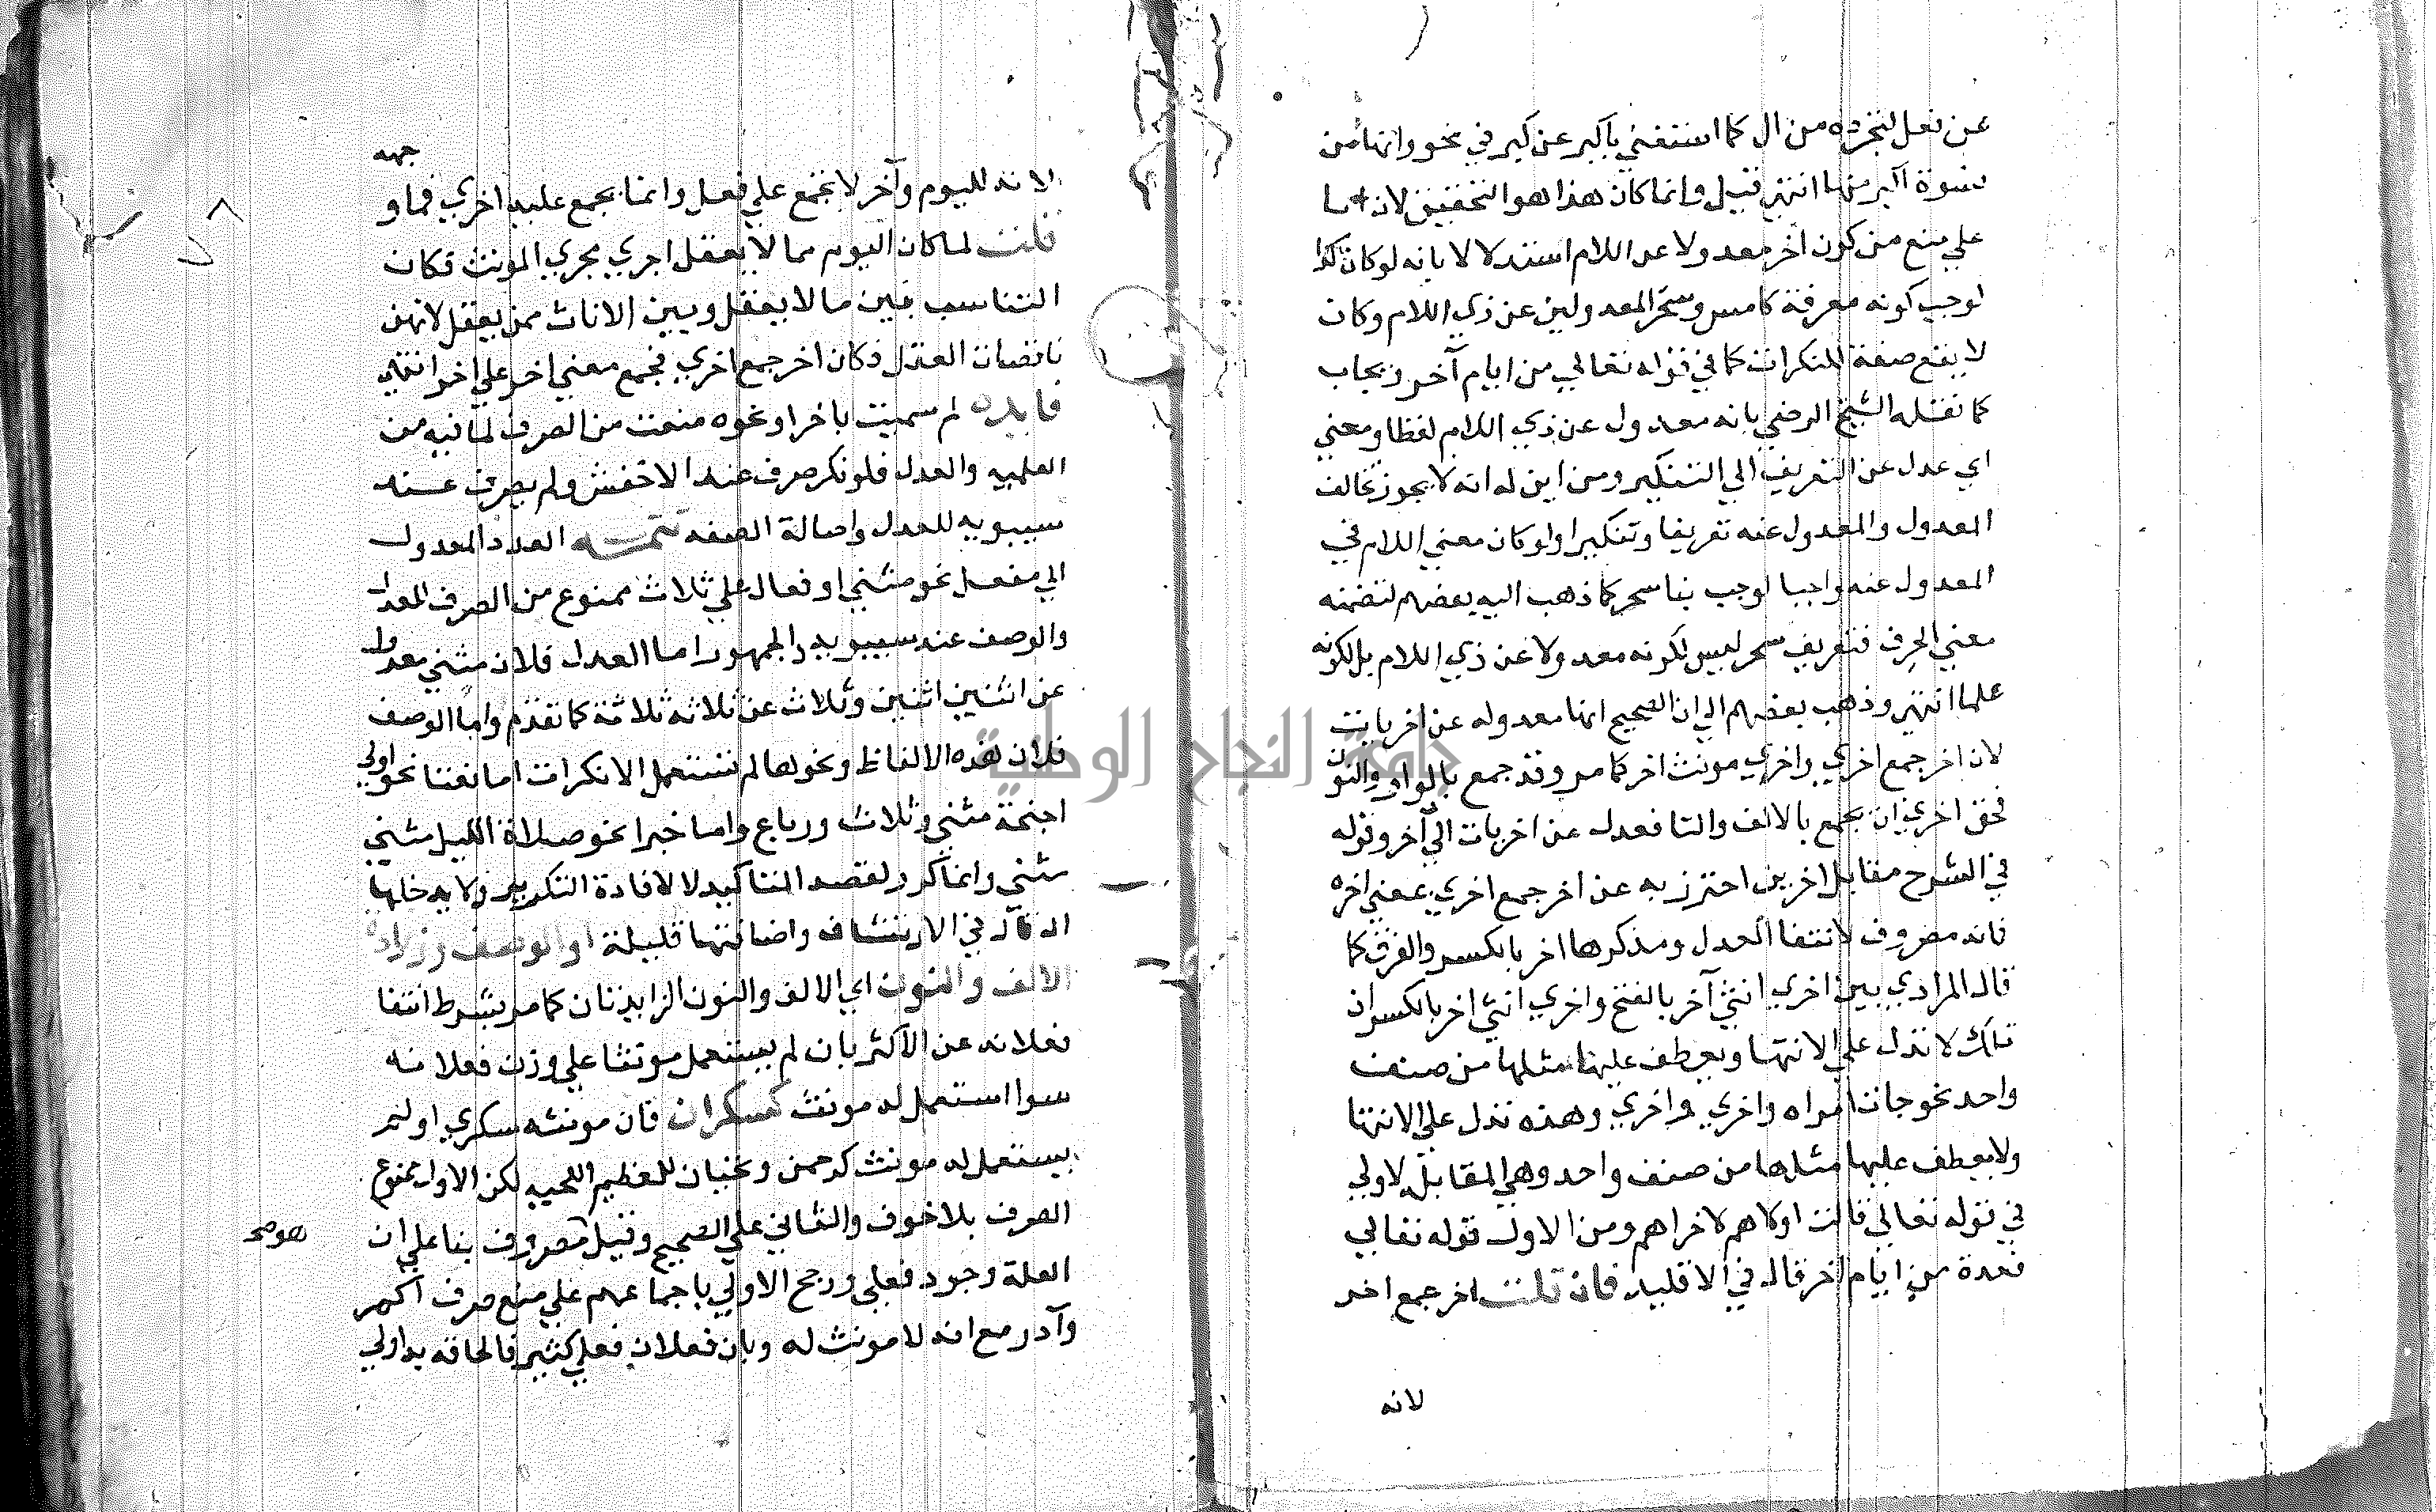 عن نعل لتجرده من ال كما استغني باكبر عن كبر في نحو رايتها من
نسوة اكبر منها انتهي قيل وانما كان هذا هو التحقيق لان ما
علي منع من كون اخر معدولا عن اللام استدلالا بانه لو كان كذا
لوجب كونه معرفة كامس وسحر المعدولين عن ذي اللام وكان
لا يقع صفة للنكرات كما في قوله تعالي من ايام آخر ويجاب
كما نقله الشيخ الرضي بانه معدول عن ذي اللام لفظا ومعني
اي عدل عن التعريف الي التنكير ومن اين له انه لا يجوز تخالف
المعدول والمعدول عنه تعريفا وتنكيرا ولو كان معني اللام في
المعدول عنه واجبا لوجب بنا سحر كما ذهب اليه بعضهم لتضمنه
معني الحرف فتعريف سحر ليس لكونه معدولا عن ذي اللام بل لكونه
علما انتهي وذهب بعضهم الي ان الصحيح انها معدوله عن اخريات
لان اخر جمع اخري واخري مونث اخر كما مر وقد جمع بالواو والنون
فحق اخري ان يجمع بالالف والتا فعدل عن اخريات الي آخر وقوله
في الشرح مقابل اخرين احترز به عن اخر جمع اخري بمعني اخره
فانه مصروف لانتفا العدل ومذكرها اخر بالكسر والفرق كما
قال المرادي بين اخري انثي آخر بالفتح واخري انثي اخر بالكسر ان
تلك لا تدل علي الانتها ويعطف عليها مثلها من صنف
واحد نحو جات امراه واخري واخري وهذه تدل علي الانتها
ولا يعطف عليها مثلها من صنف واحد وهي المقابله لاولي
في قوله تعالي قالت اولاهم لاخراهم ومن الاول قوله تعالي
فعدة من ايام اخر قال في الاقليد فان قلت اخر جمع اخر
لانه
جهه
لانه لليوم وآخر لا يجمع علي فعل وانما يجمع عليه اخري فما و
قلت لما كان اليوم مما لا يعقل اجري مجري المونث فكان
التناسب بين ما لا يعقل وبين الاناث ممن يعقل لانهن
ناقصات العقل فكان اخر جمع اخري فجمع معني اخر علي اخر انتهي
فايده لم سميت باخر او نحوه منعت من الصرف لما فيه من
العلميه والعدل فلو نكر صرف عند الاخفش ولم يصرف عنه
سيبويه للعدل واصالة الصفه تتمه العدد المعدول
الي مفعل نحو مثني او فعال علي ثلاث ممنوع من الصرف للعدل
والوصف عند سيبويه والجمهور اما العدل فلان مثني معدول
عن اثنين اثنين وثلاث عن ثلاثه ثلاثة كما تقدم واما الوصف
فلان هذه الالفاظ ونحوها لم تستعمل الا نكرات اما نعتا نحو اولي
اجنحة مثني وثلاث ورباع واما خبرا نحو صلاة الليل مثني
مثني وانما كرر لقصد التاكيد لا لافادة التكرير ولا يدخلها
ال قال في الارتشاف واضافتها قليلة او الوصف وزيادة
الالف والنون اي الالف والنون الزايدتان كما مر بشرط انتفا
فعلانه عن الاكثر بان لم يستعمل مونثا علي وزن فعلانه
سوا استعمل له مونث كسكران فان مونثه سكري او لم
يستعمل له مونث كرحمن ونحيان للعظيم اللحيه لكن الاول ممنوع
الصرف بلا خوف والثاني علي الصحيح وقيل مصروف بنا علي ان
هو صح
العلة وجود فعلي ورجح الاولي باجماعهم علي منع صرف اكمر
وآدر مع انه لا مونث له وبان فعلان فعلي كثير فالحاقه به اولي
جامعة النجاح الوطنية